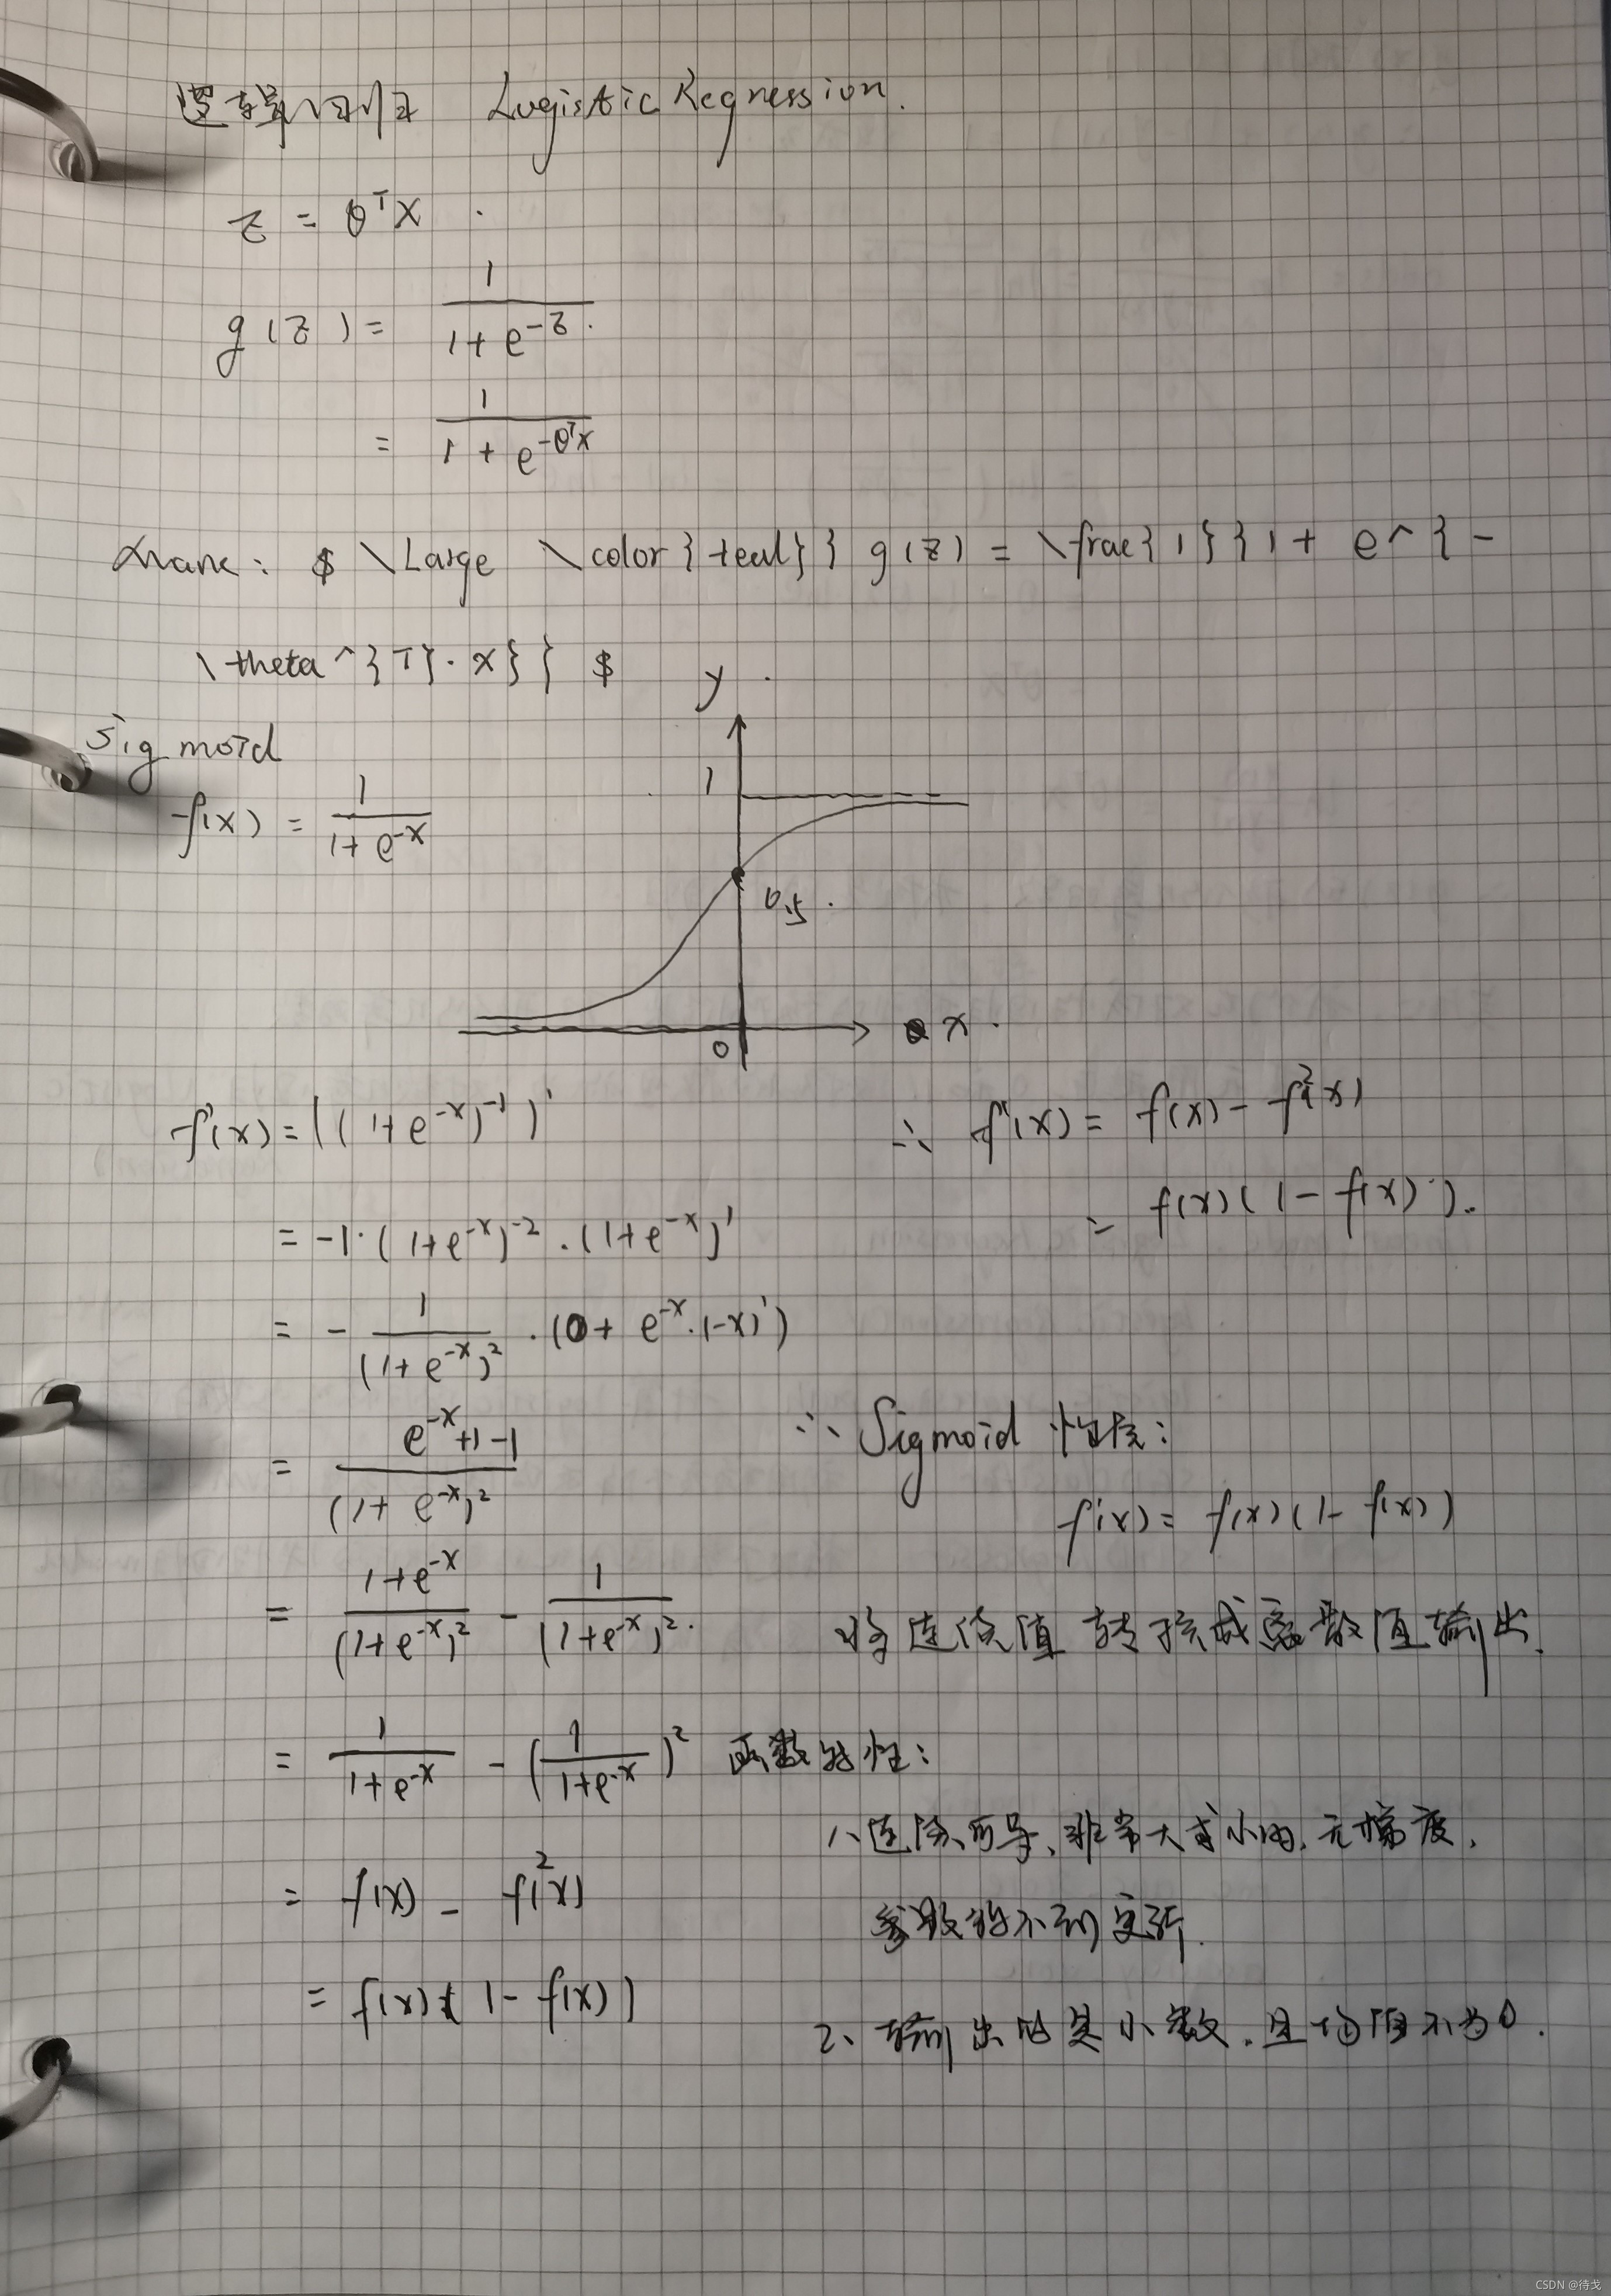 逻辑回归 Logistic Regression.
z = θᵀX
g(z) = 1/(1+e^{-z}).
= 1/(1+e^{-θᵀx})
: $ \Large \color{teal}{ g(z) = \frac{1}{1+ e^{-
\theta^{T}·x}} $
Sigmoid
f(x) = 1/(1+e^{-x})
y
1
0.5
0
x
f'(x) = ((1+e^{-x})^{-1})'
= -1·(1+e^{-x})^{-2}·(1+e^{-x})'
= - 1/(1+e^{-x})² ·(0+ e^{-x}·(-x)')
= (e^{-x}+1-1)/(1+e^{-x})²
= (1+e^{-x})/(1+e^{-x})² - 1/(1+e^{-x})².
= 1/(1+e^{-x}) - (1/(1+e^{-x}))²
= f(x) - f²(x)
= f(x)(1-f(x))
∴ f'(x) = f(x) - f²(x)
= f(x)(1-f(x)).
∴ Sigmoid 性质:
f'(x) = f(x)(1-f(x))
将连续值转换成离散值输出.
函数特性:
1、连续、可导、非常大或小时,无梯度,
参数得不到更新.
2、输出的是小数,且均值不为0.
CSDN @待戈